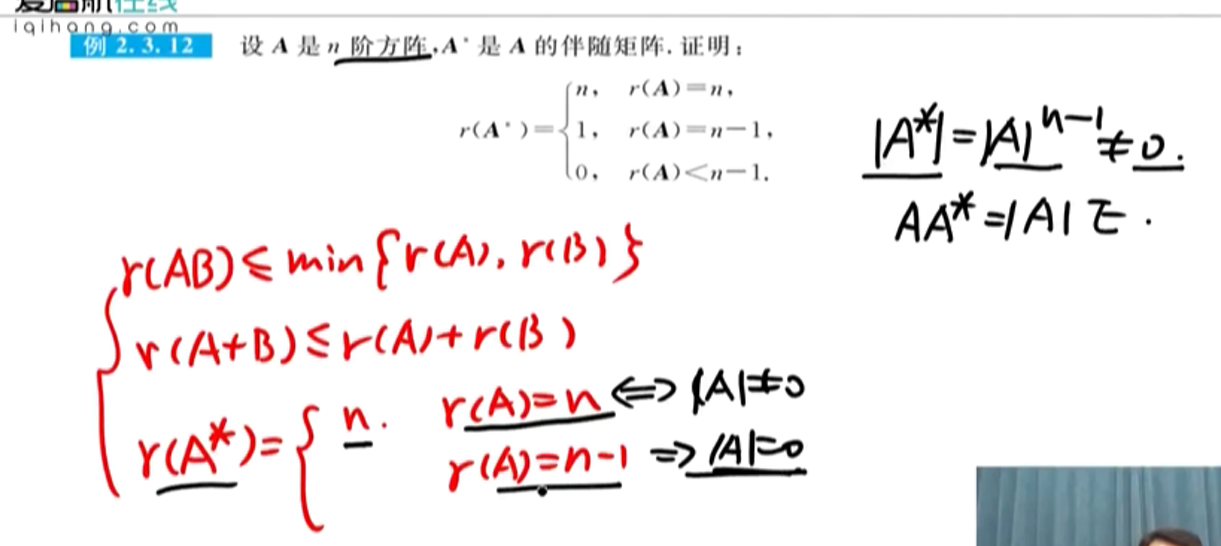 iqihang.com
例 2.3.12 设 A 是 n 阶方阵,A* 是 A 的伴随矩阵.证明:
r(A*)={n, r(A)=n,
1, r(A)=n-1,
0, r(A)<n-1.
|A*|=|A|ⁿ⁻¹≠0.
AA*=|A|E.
r(AB)≤min{r(A), r(B)}
r(A+B)≤r(A)+r(B)
r(A*)={n. r(A)=n⇔|A|≠0
r(A)=n-1 ⇒|A|=0